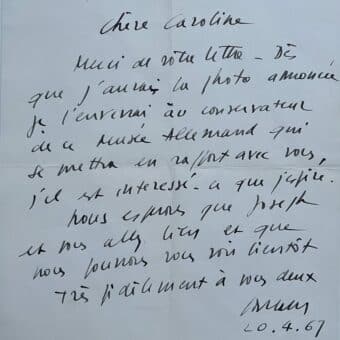 Chère Caroline
Merci de votre lettre - Dès
que j'aurais la photo annoncée
je l'enverrai au conservateur
de ce Musée Allemand qui
se mettra en rapport avec vous,
s'il est interessé - ce que j'espère.
Nous espérons que Joseph
et vous allez bien et que
nous pourrons vous voir bientôt
Très fidèlement à vous deux
20.4.67